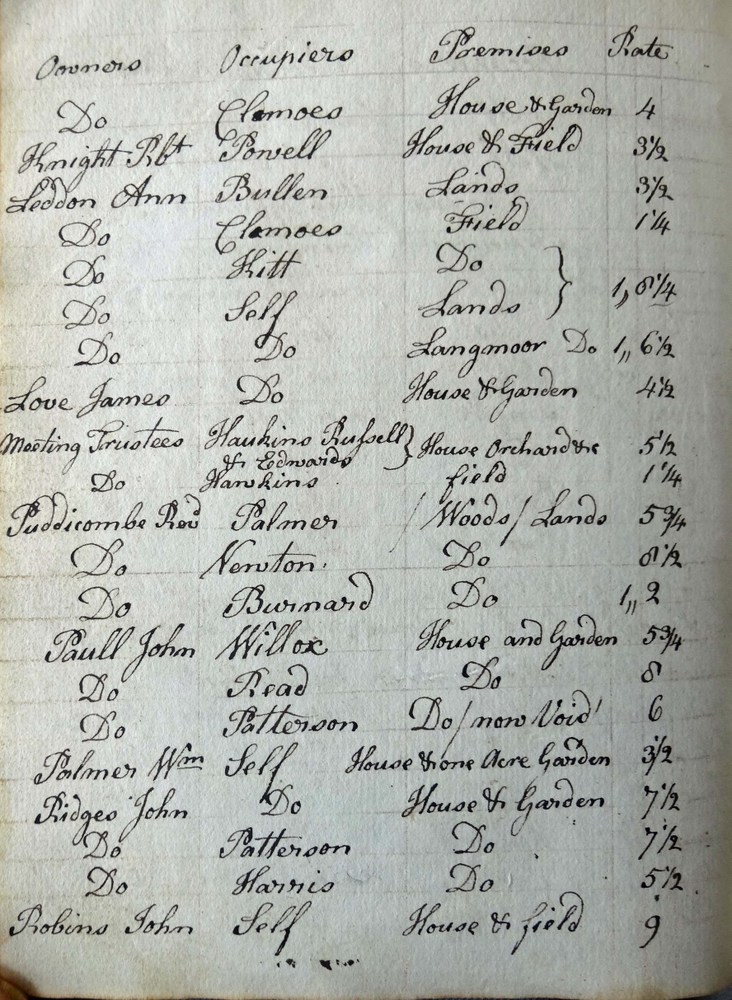 Owners Occupiers Premises Rate
Do Clamoes House & Garden 4
Knight Rbt Powell House & Field 3 1/2
Leddon Ann Bullen Lands 3 1/2
Do Clamoes Field 1 1/4
Do Kitt Do
Do Self Lands } 1,, 8 1/4
Do Do Langmoor Do 1,, 6 1/2
Love James Do House & Garden 4 1/2
Meeting Trustees Haukins Russell } House Orchard &c 5 1/2
& Edwards
Do Hawkins field 1 1/4
Puddicombe Revd Palmer / Woods / Lands 5 3/4
Do Newton Do 8 1/2
Do Burnard Do 1,, 2
Paull John Willox House and Garden 5 3/4
Do Read Do 8
Do Patterson Do / now Void 6
Palmer Wm Self House & one Acre Garden 3 1/2
Ridges John Do House & Garden 7 1/2
Do Patterson Do 7 1/2
Do Harris Do 5 1/2
Robins John Self House & field 9